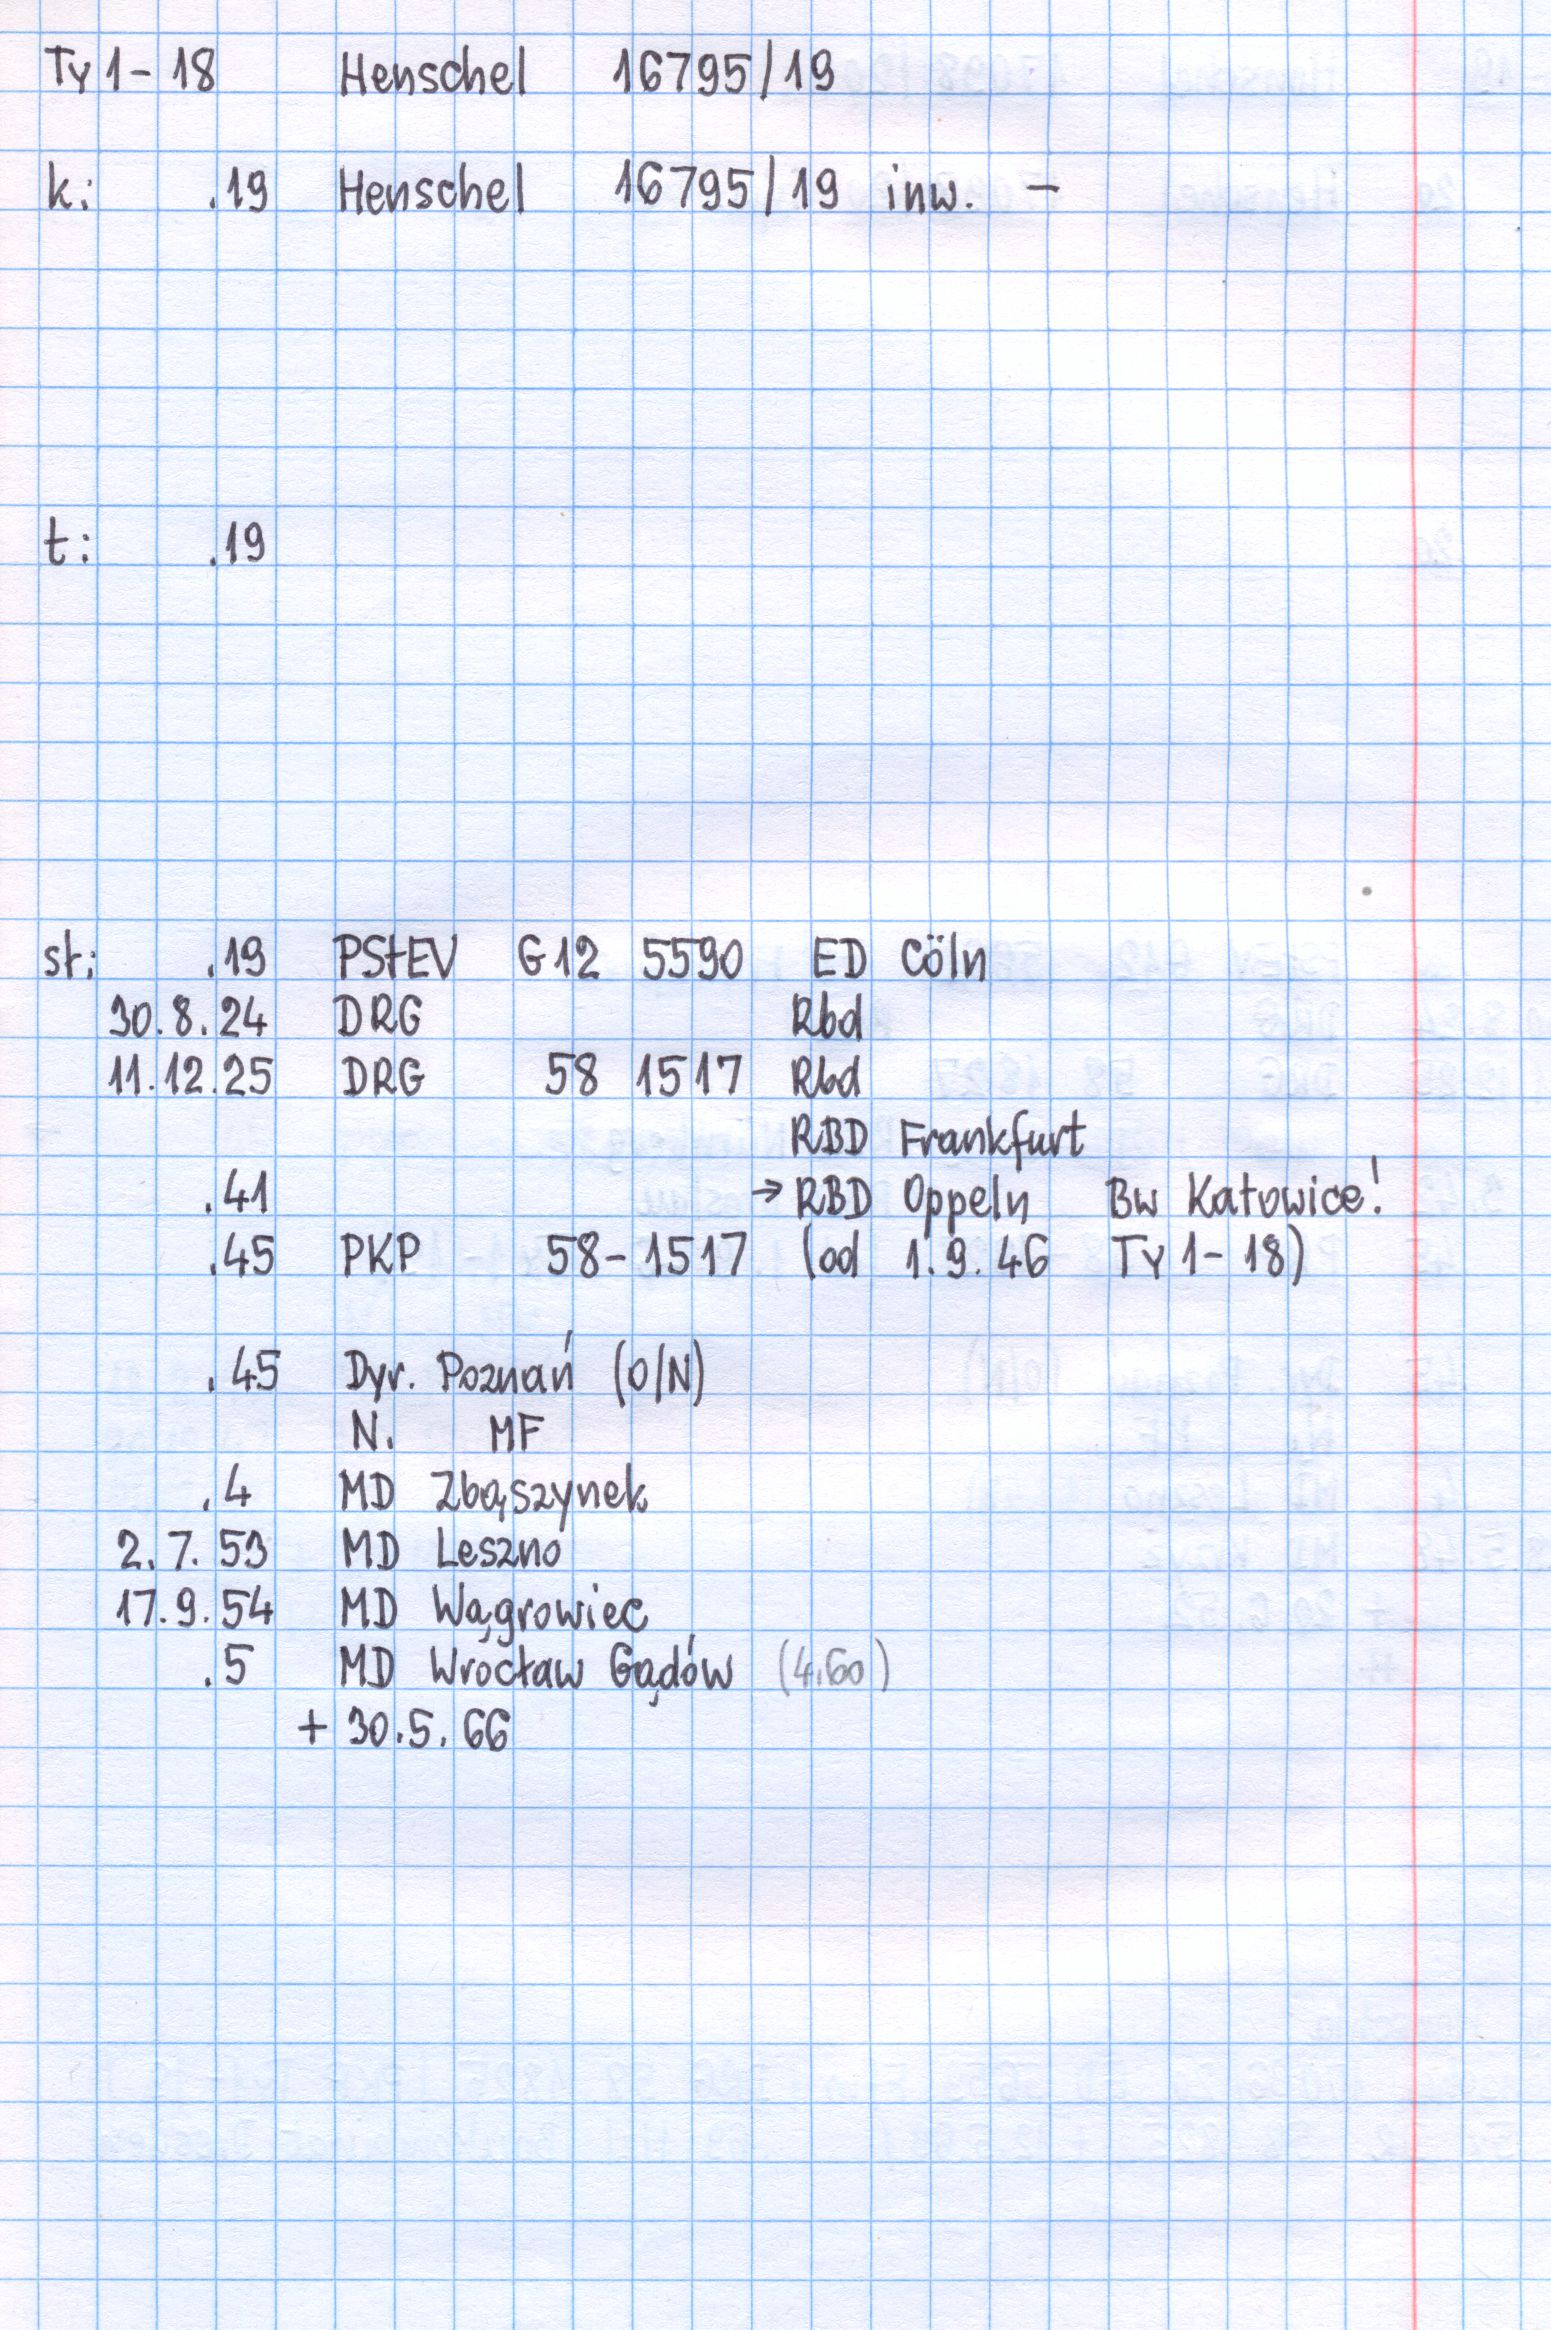 Ty 1 - 18 Henschel 16795/19
k: .19 Henschel 16795/19 inw. -
t: .19
st: .19 PStEV G12 5590 ED Cöln
30.8.24 DRG Rbd
11.12.25 DRG 58 1517 Rbd
RBD Frankfurt
.41 → RBD Oppeln Bw Katowice!
.45 PKP 58-1517 (od 1.9.46 Ty 1-18)
.45 Dyr. Poznań (O/N)
N. MF
.4 MD Zbąszynek
2.7.53 MD Leszno
17.9.54 MD Wągrowiec
.5 MD Wrocław Gądów (4.60)
+ 30.5.66